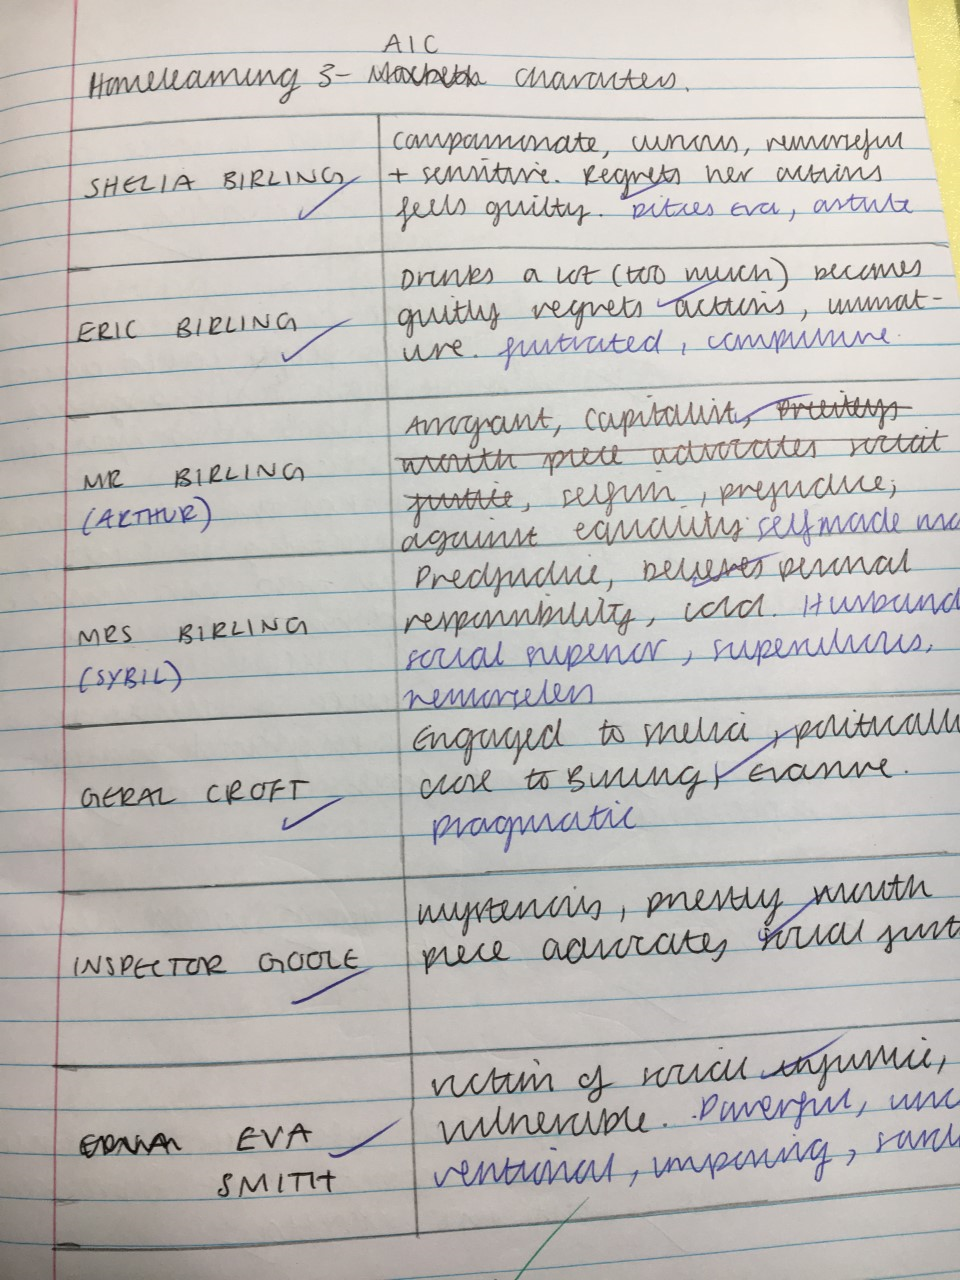 AIC
Homelearning 3- Macbeth characters.
SHELIA BIRLING
compassionate, curious, remorseful
+ sensitive. Regrets her actions
feels guilty. Pities Eva, astute
ERIC BIRLING
Drinks a lot (too much) becomes
guilty regrets actions, immat-
ure. frustrated, compulsive.
MR BIRLING
(ARTHUR)
Arrogant, capitalist, Prieitys
mouth piece advocates social
justice, selfish, prejudice,
against equality. selfmade ma
MRS BIRLING
(SYBIL)
Predjudice, believes personal
responsibility, cold. Husband
social superior, supercilious,
remorseless
GERAL CROFT
Engaged to Shelia, politically
close to Birling, Evansive.
pragmatic
INSPECTOR GOOLE
mysterious, priestly mouth
piece advocates social just
EVA
SMITH
victim of social injustice,
vulnerable. Powerful, unc
ventional, imposing, sard